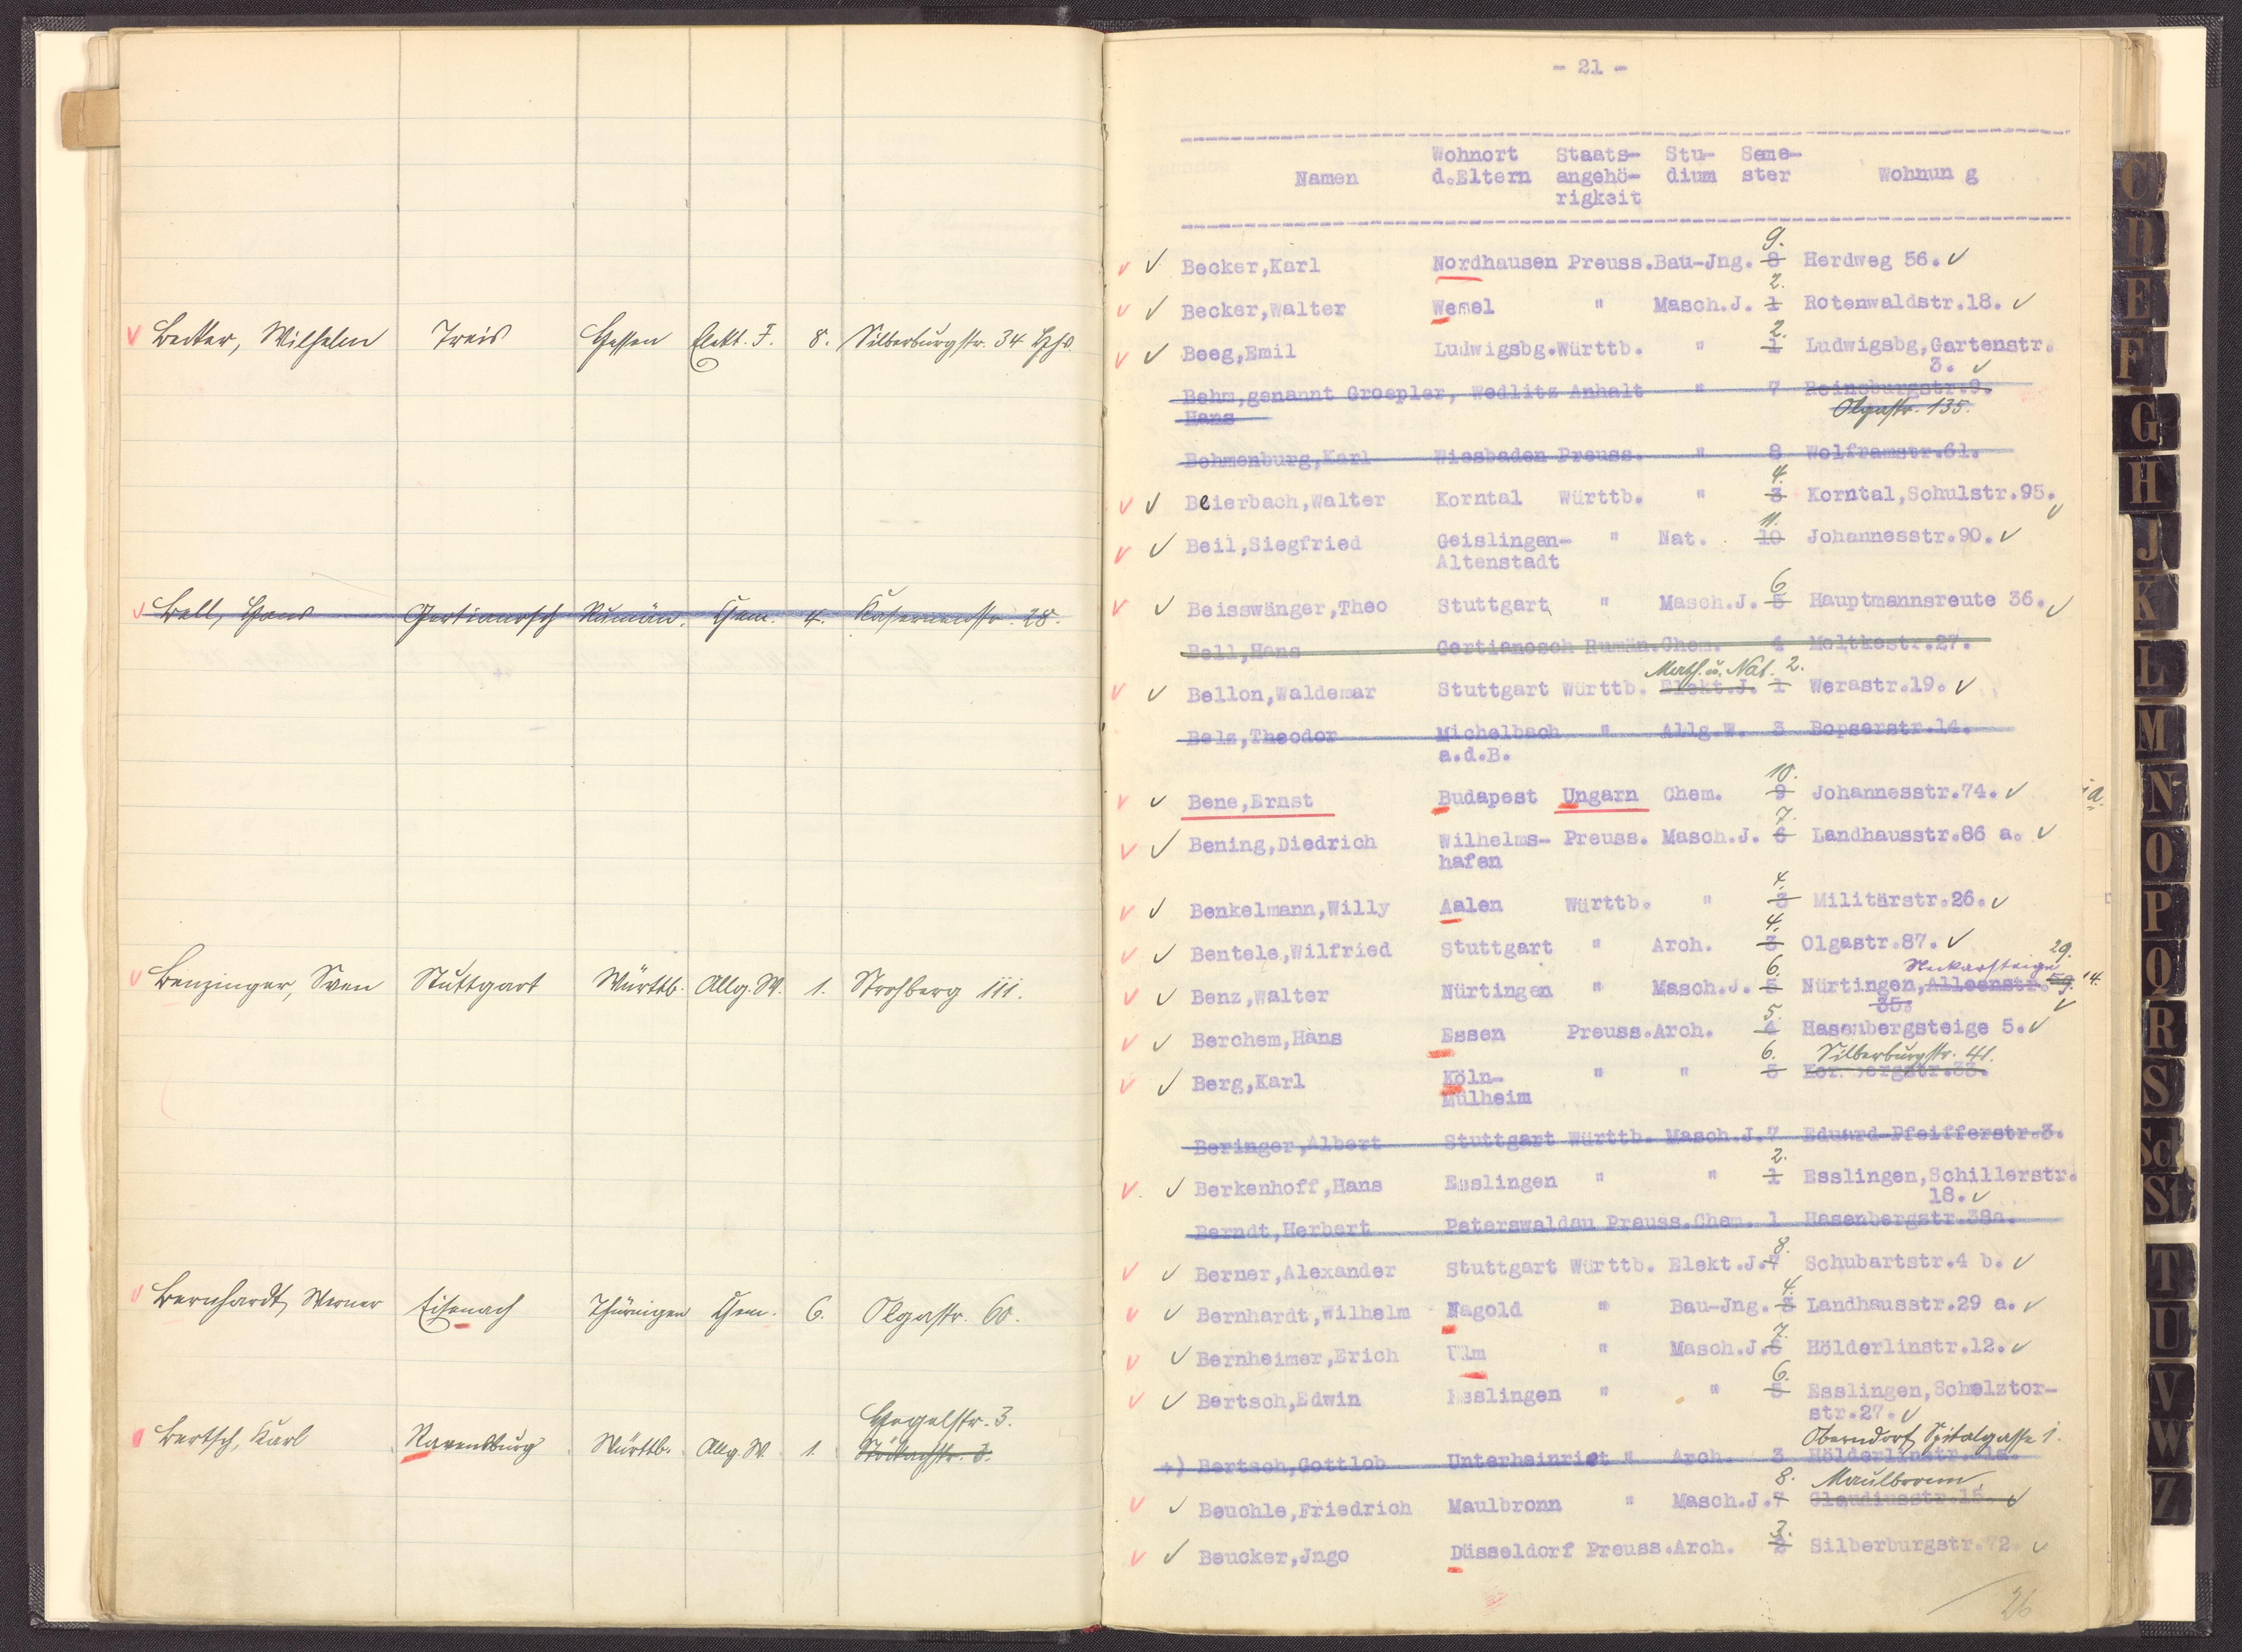 Becker, Wilhelm Treis Hessen Elekt. J. 8. Silberburgstr. 34 Hhs.
Bell, Hans Gertianosch Rumän. Chem. 4. Kasernenstr. 28.
Benzinger, Sven Stuttgart Württb. Allg. W. 1. Strohberg 111.
Bernhardt, Werner Eisenach Thüringen Chem. 6. Olgastr. 60.
Hegelstr. 3.
Bertsch, Karl Ravensburg Württb. Allg. W. 1. Stöckachstr. 3.
- 21 -
Wohnort Staats- Stu- Seme-
Namen d.Eltern angehö- dium ster Wohnun g
rigkeit
9.
Becker,Karl Nordhausen Preuss.Bau-Jng. 8 Herdweg 56.
2.
Becker,Walter Wesel " Masch.J. 1 Rotenwaldstr.18.
2.
Beeg,Emil Ludwigsbg.Württb. " 1 Ludwigsbg,Gartenstr.
3.
Behm,genannt Groepler, Wedlitz Anhalt " 7 Reinsburgstr.9.
Hans Olgastr. 135.
Behmenburg,Karl Wiesbaden Preuss. " 8 Wolframstr.61.
4.
Beierbach,Walter Korntal Württb. " 3 Korntal,Schulstr.95.
11.
Beil,Siegfried Geislingen- " Nat. 10 Johannesstr.90.
Altenstadt
6
Beisswänger,Theo Stuttgart " Masch.J. 5 Hauptmannsreute 36.
Bell,Hans Gertianosch Rumän.Chem. 4 Moltkestr.27.
Math. u. Nat. 2.
Bellon,Waldemar Stuttgart Württb. Elekt.J. 1 Werastr.19.
Belz,Theodor Michelbach " Allg.W. 3 Bopserstr.14.
a.d.B.
10.
Bene,Ernst Budapest Ungarn Chem. 9 Johannesstr.74. a.
7.
Bening,Diedrich Wilhelms- Preuss. Masch.J. 6 Landhausstr.86 a.
hafen
4.
Benkelmann,Willy Aalen Württb. " 3 Militärstr.26.
4.
Bentele,Wilfried Stuttgart " Arch. 3 Olgastr.87.
6. Neckarsteige 29.
Benz,Walter Nürtingen " Masch.J. 5 Nürtingen,Alleenstr. 59. 14.
35.
5.
Berchem,Hans Essen Preuss.Arch. 4 Hasenbergsteige 5.
6. Silberburgstr. 41.
Berg,Karl Köln- " " 5
Mülheim
Beringer,Albert Stuttgart Württb. Masch.J.7 Eduard-Pfeifferstr.3.
2.
Berkenhoff,Hans Esslingen " " 1 Esslingen,Schillerstr.
18.
Berndt,Herbert Peterswaldau Preuss.Chem. 1 Hasenbergstr.38a.
8.
Berner,Alexander Stuttgart Württb. Elekt.J.7 Schubartstr.4 b.
4.
Bernhardt,Wilhelm Nagold " Bau-Jng. 3 Landhausstr.29 a.
7.
Bernheimer,Erich Ulm " Masch.J.6 Hölderlinstr.12.
6.
Bertsch,Edwin Esslingen " " 5 Esslingen,Schelztor-
str.27.
Oberndorf, Spitalgasse 1.
+) Bertsch,Gottlob Unterheinriet " Arch. 3 Hölderlinstr.
8. Maulbronn
Beuchle,Friedrich Maulbronn " Masch.J.7 Claudiusstr.15.
3.
Beucker,Jngo Düsseldorf Preuss.Arch. 2 Silberburgstr.72
26
C
D
E
F
G
H
J
K
L
M
N
O
P
Q
R
S
Sch
St
T
U
V
W
Z